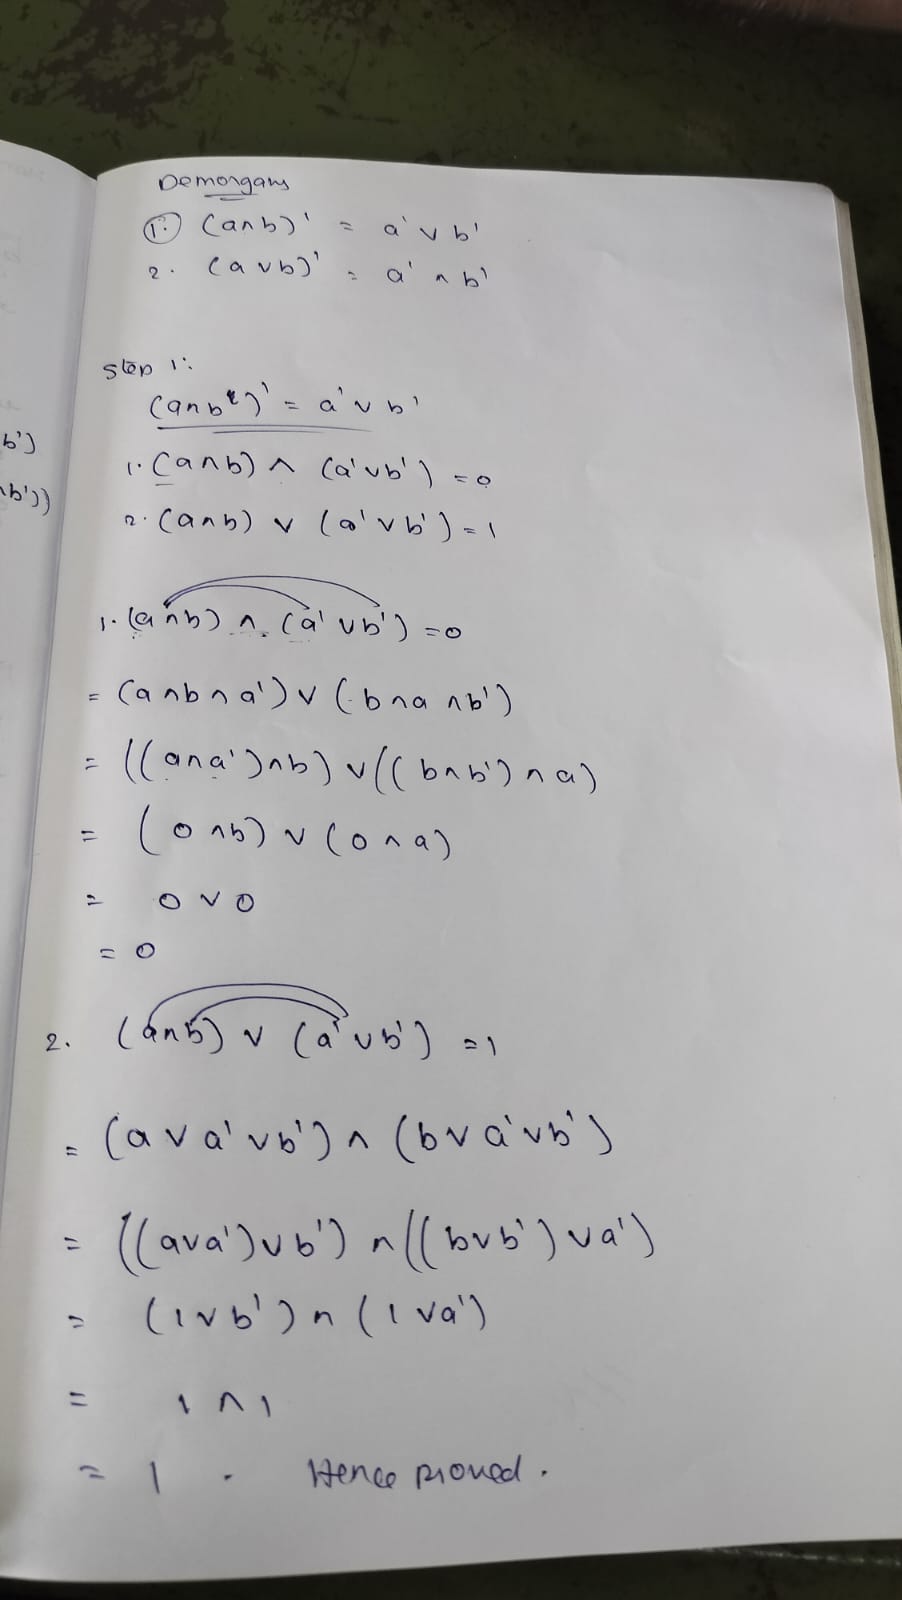 b')
∧b'))
Demorgans
1. (a∧b)' = a' ∨ b'
2. (a ∨b)' = a' ∧ b'
Step 1:
(a∧b)' = a' ∨ b'
1. (a∧b) ∧ (a'∨b') = 0
2. (a∧b) ∨ (a' ∨ b') = 1
1. (a∧b) ∧ (a' ∨b') = 0
= (a∧b∧a') ∨ (b∧a∧b')
= ((a∧a')∧b) ∨ ((b∧b')∧a)
= (0∧b) ∨ (0∧a)
= 0 ∨ 0
= 0
2. (a∧b) ∨ (a'∨b') = 1
= (a∨a'∨b') ∧ (b∨a'∨b')
= ((a∨a')∨b') ∧ ((b∨b')∨a')
= (1∨b') ∧ (1∨a')
= 1 ∧ 1
= 1 . Hence proved.